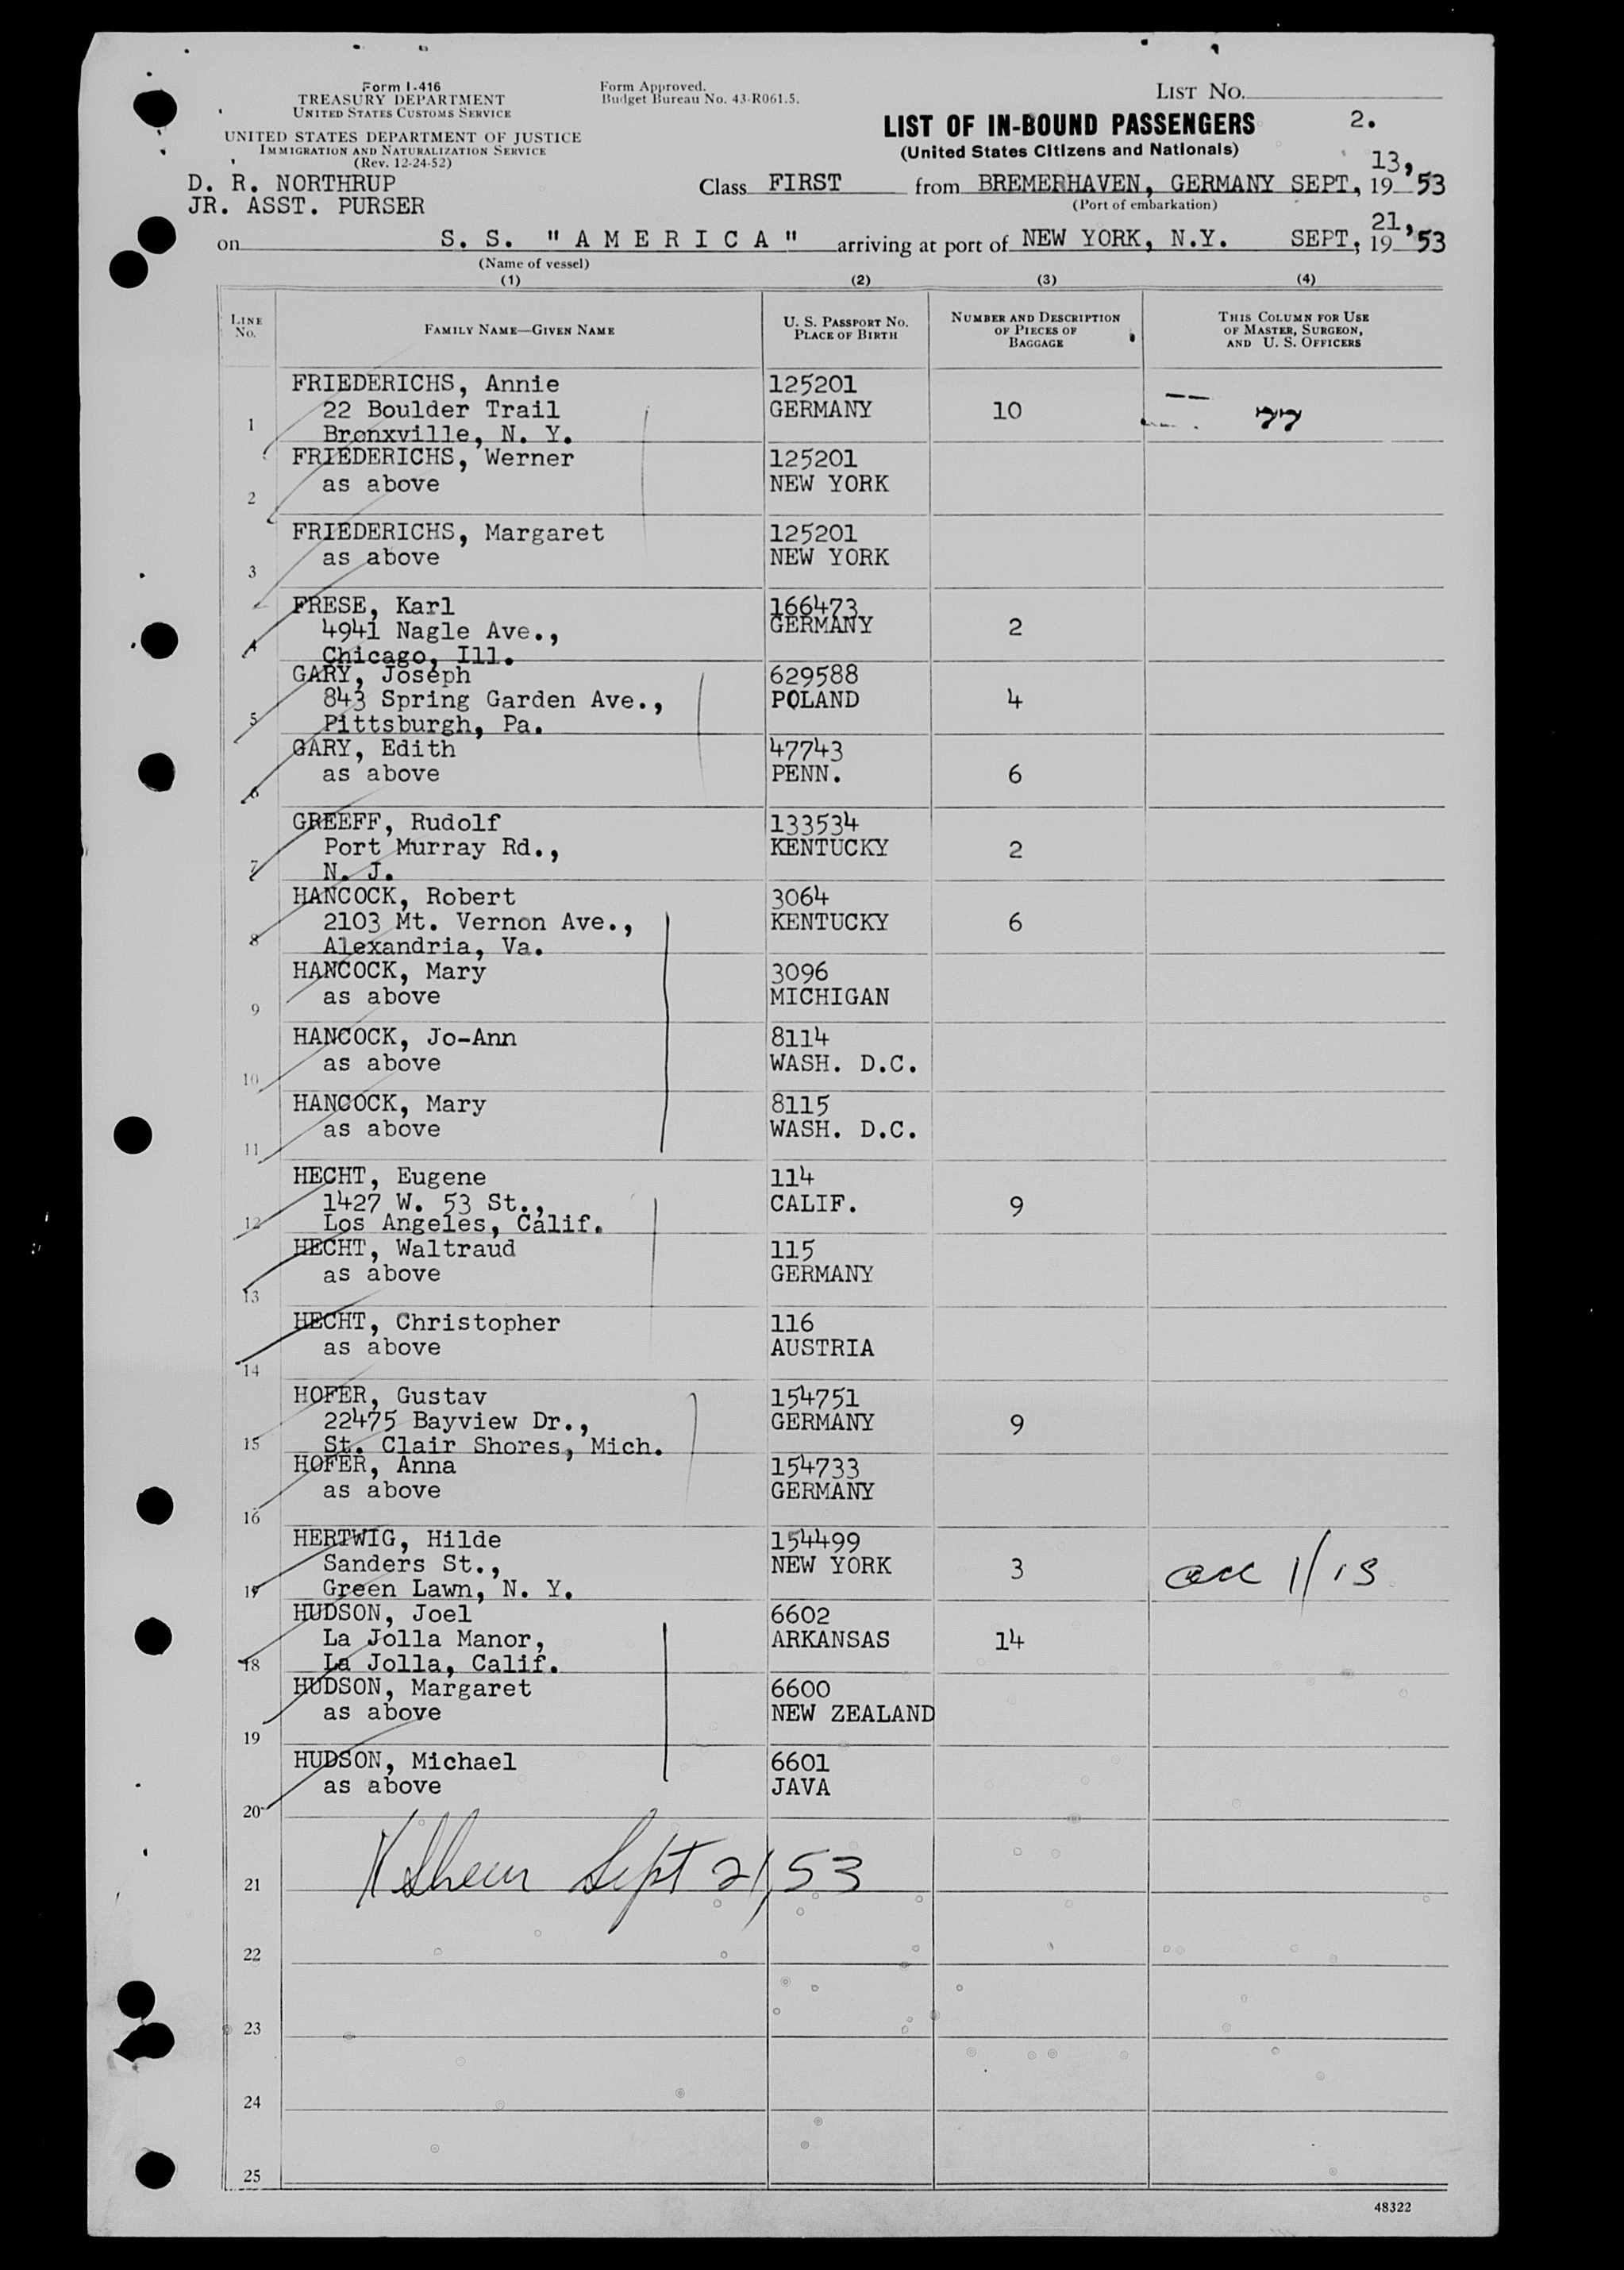 Form I-416
TREASURY DEPARTMENT
UNITED STATES CUSTOMS SERVICE
UNITED STATES DEPARTMENT OF JUSTICE
IMMIGRATION AND NATURALIZATION SERVICE
(Rev. 12-24-52)
Form Approved.
Budget Bureau No. 43-R061.5.
LIST NO.
2.
LIST OF IN-BOUND PASSENGERS
(United States Citizens and Nationals)
D. R. NORTHRUP
JR. ASST. PURSER
Class FIRST from BREMERHAVEN, GERMANY SEPT, 13, 19 53
(Port of embarkation)
on S. S. "AMERICA" arriving at port of NEW YORK, N.Y. SEPT, 21, 19 53
(Name of vessel)
(1) (2) (3) (4)
LINE NO.
FAMILY NAME—GIVEN NAME
U. S. PASSPORT NO.
PLACE OF BIRTH
NUMBER AND DESCRIPTION
OF PIECES OF
BAGGAGE
THIS COLUMN FOR USE
OF MASTER, SURGEON,
AND U. S. OFFICERS
FRIEDERICHS, Annie 125201
1 22 Boulder Trail GERMANY 10
Bronxville, N. Y.
FRIEDERICHS, Werner 125201
2 as above NEW YORK
FRIEDERICHS, Margaret 125201
3 as above NEW YORK
FRESE, Karl 166473
4 4941 Nagle Ave., GERMANY 2
Chicago, Ill.
GARY, Joseph 629588
5 843 Spring Garden Ave., POLAND 4
Pittsburgh, Pa.
GARY, Edith 47743
6 as above PENN. 6
GREEFF, Rudolf 133534
7 Port Murray Rd., KENTUCKY 2
N. J.
HANCOCK, Robert 3064
8 2103 Mt. Vernon Ave., KENTUCKY 6
Alexandria, Va.
HANCOCK, Mary 3096
9 as above MICHIGAN
HANCOCK, Jo-Ann 8114
10 as above WASH. D.C.
HANCOCK, Mary 8115
11 as above WASH. D.C.
HECHT, Eugene 114
12 1427 W. 53 St., CALIF. 9
Los Angeles, Calif.
HECHT, Waltraud 115
13 as above GERMANY
HECHT, Christopher 116
14 as above AUSTRIA
HOFER, Gustav 154751
15 22475 Bayview Dr., GERMANY 9
St. Clair Shores, Mich.
HOFER, Anna 154733
16 as above GERMANY
HERTWIG, Hilde 154499
17 Sanders St., NEW YORK 3
Green Lawn, N. Y.
HUDSON, Joel 6602
18 La Jolla Manor, ARKANSAS 14
La Jolla, Calif.
HUDSON, Margaret 6600
19 as above NEW ZEALAND
HUDSON, Michael 6601
20 as above JAVA
21 Sept 21, 53
22
23
24
25
48322